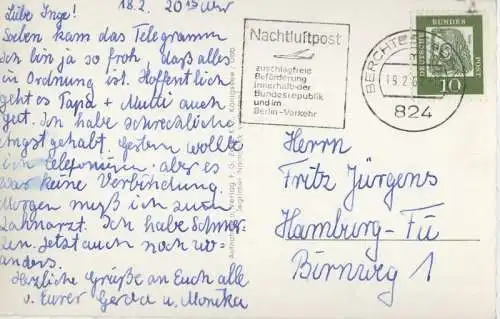 18.2. 20¹⁵ Uhr
Liebe Inge!
Soeben kam das Telegramm
Ich bin ja so froh, daß alles
in Ordnung ist. Hoffentlich
geht es Papa + Mutti auch
gut. Ich habe schreckliche
Angst gehabt. Gestern wollte
ich telefonieren, aber es
war keine Verbindung.
Morgen muß ich zum
Zahnarzt. Ich habe Schmer-
zen. Jetzt auch noch wo-
anders.
Herzliche Grüße an Euch alle
v. Eurer Gerda u. Monika
Nachtluftpost
zuschlagfreie
Beförderung
innerhalb der
Bundesrepublik
und im
Berlin-Verkehr
BERCHTE
19.2.6
824
DEUTSCHE
BUNDES
POST
10
Herrn
Fritz Jürgens
Hamburg-Fu
Birnweg 1